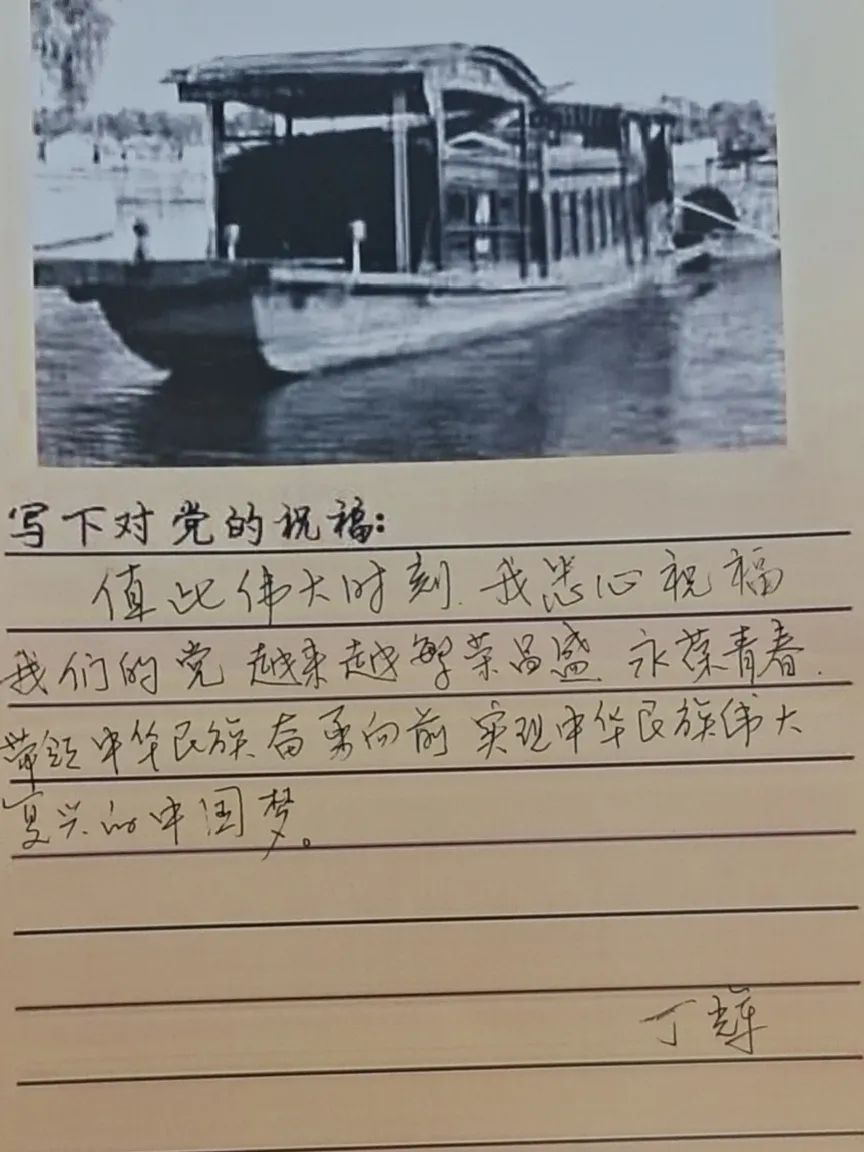 写下对党的祝福:
值此伟大时刻.我悉心祝福
我们的党 越来越繁荣昌盛 永葆青春.
带领中华民族奋勇向前 实现中华民族伟大
复兴的中国梦。
丁辉